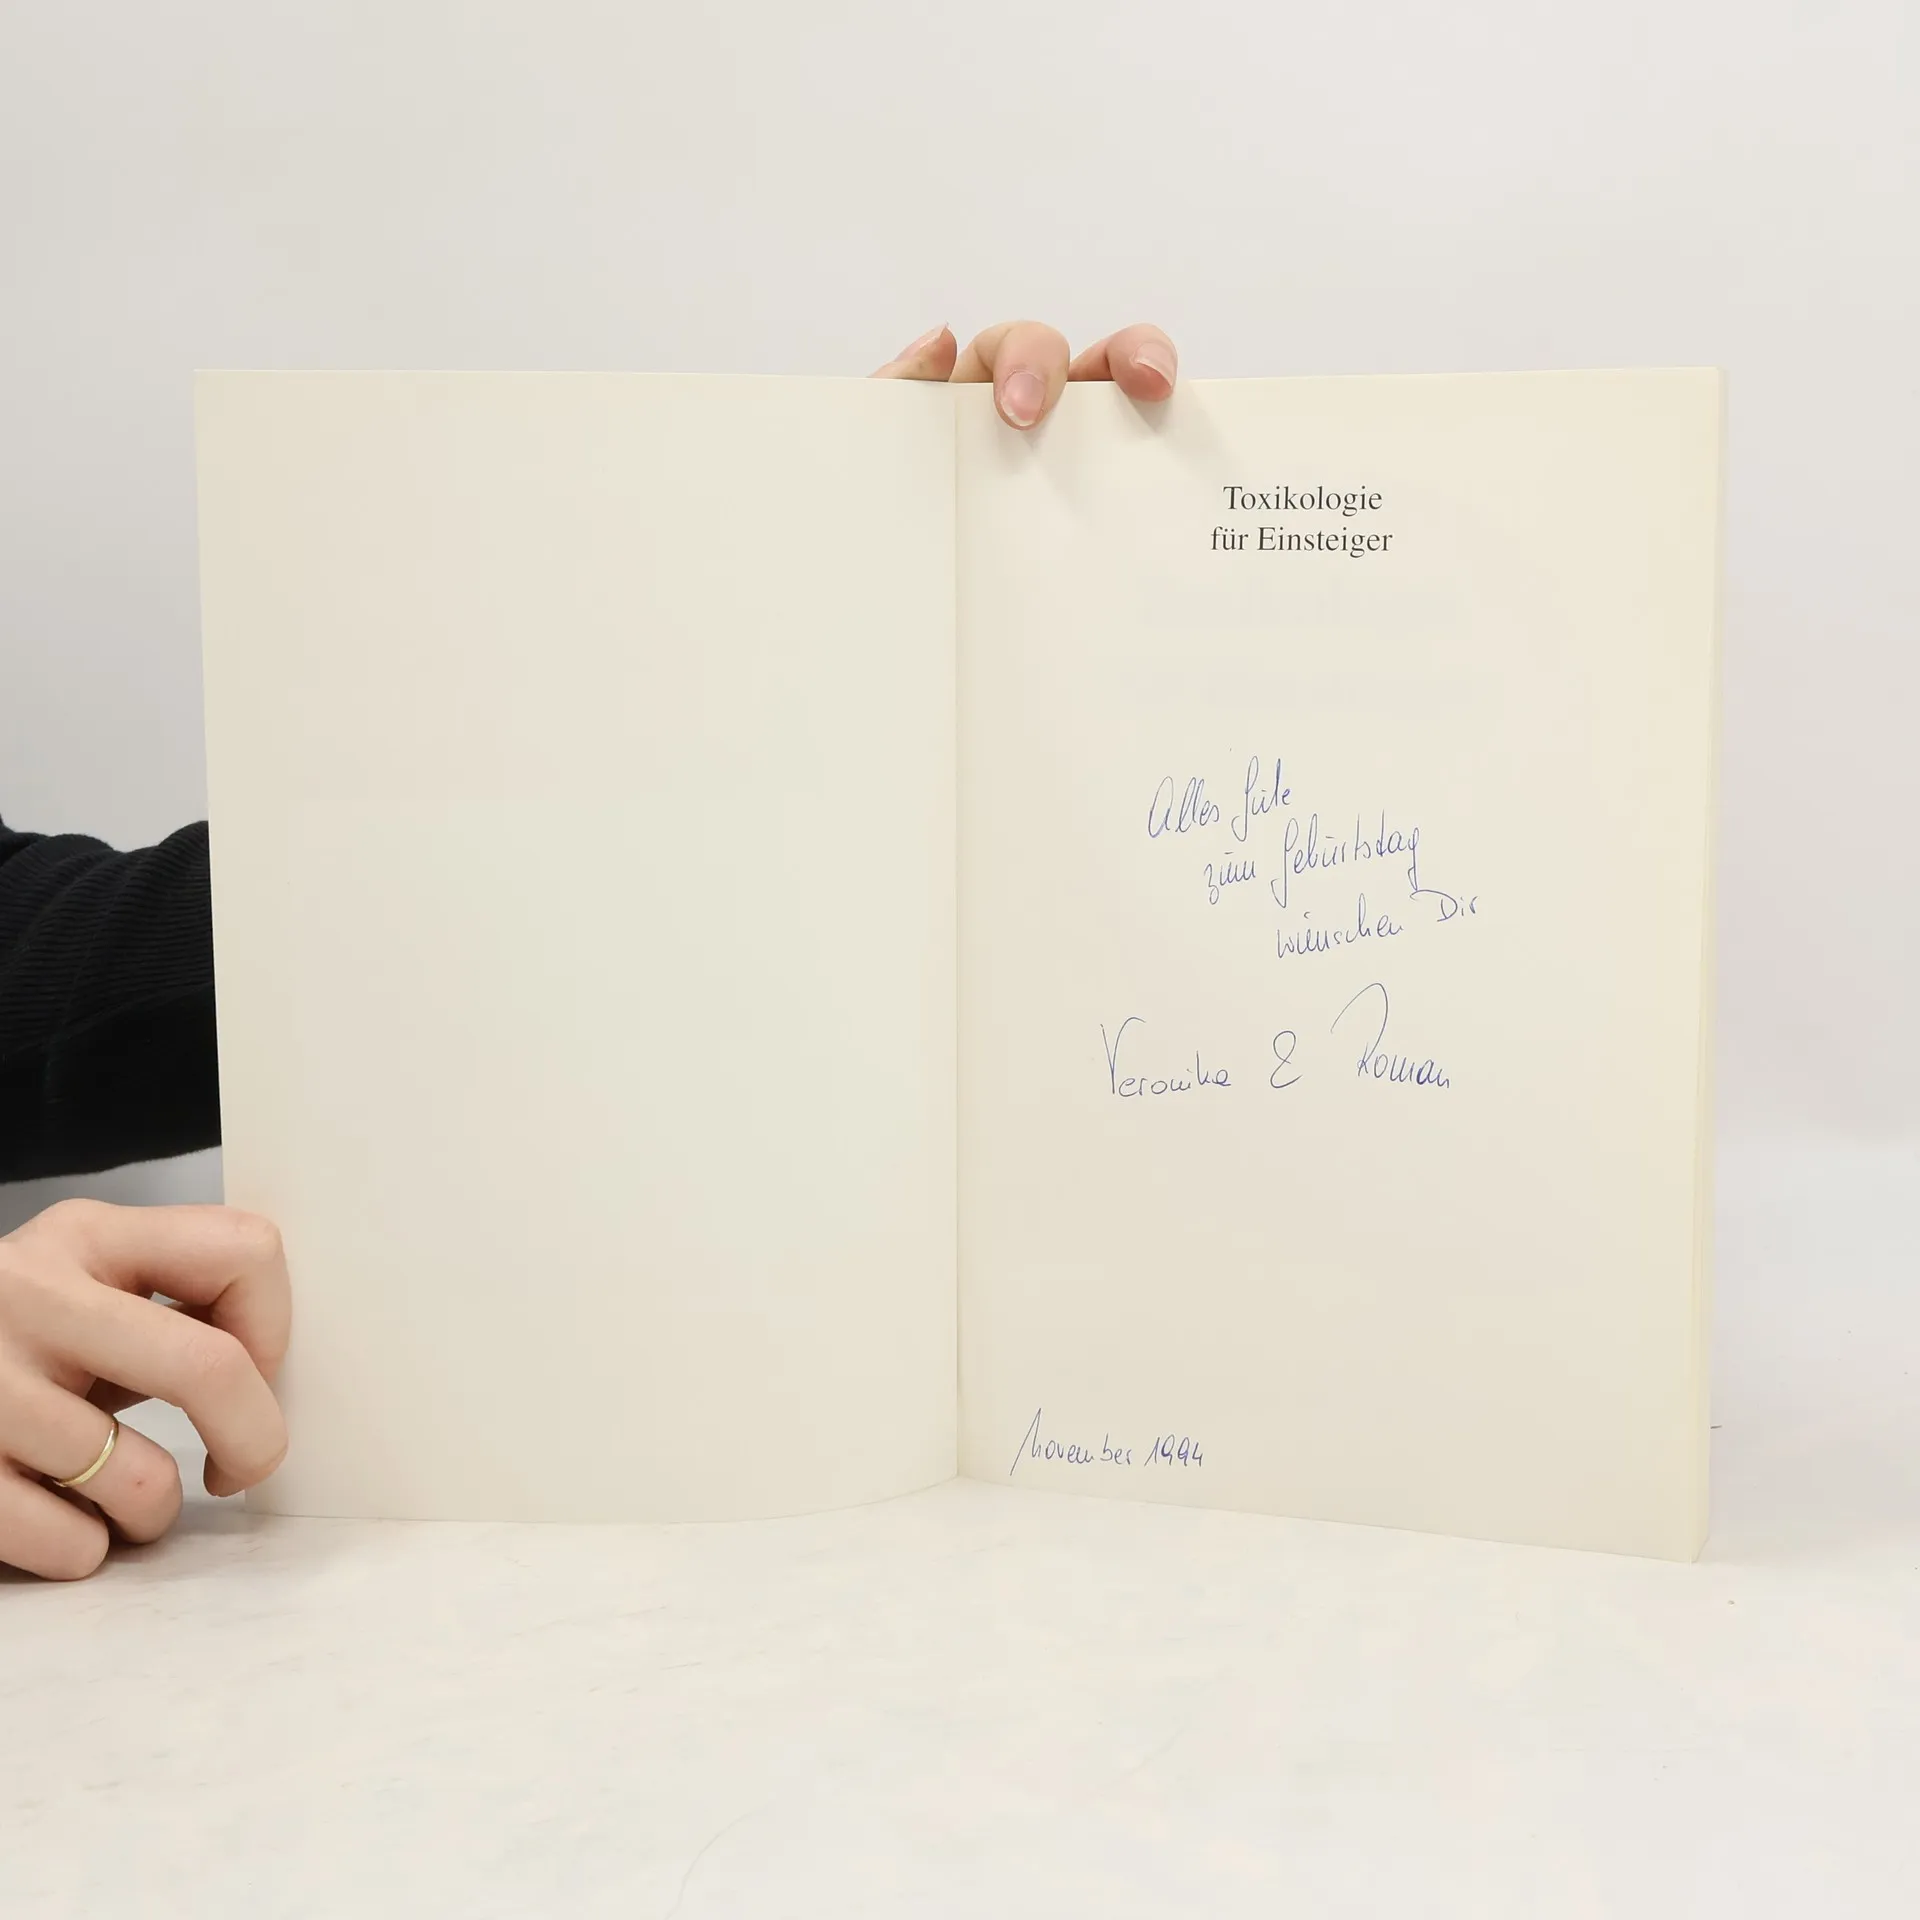 Toxikologie
für Einsteiger
Alles Gute
zum Geburtstag
wünschen Dir
Veronika & Roman
November 1994